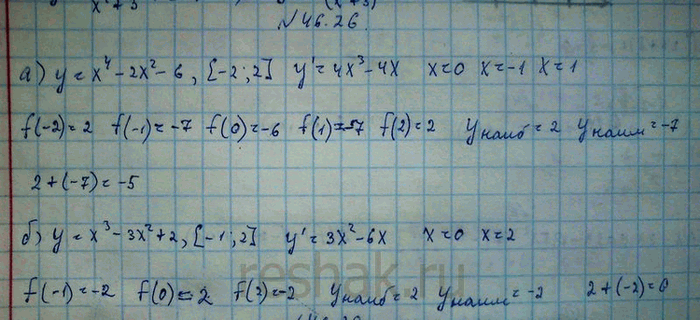 №46.26.
а) y = x⁴ - 2x² - 6, [-2; 2] y' = 4x³ - 4x x=0 x=-1 x=1
f(-2)=2 f(-1)=-7 f(0)=-6 f(1)=-7 f(2)=2 yнаиб=2 yнаим=-7
2+(-7)=-5
б) y = x³ - 3x² + 2, [-1; 2] y' = 3x² - 6x x=0 x=2
reshak.ru
f(-1)=-2 f(0)=2 f(2)=-2 yнаиб=2 yнаим=-2 2+(-2)=0